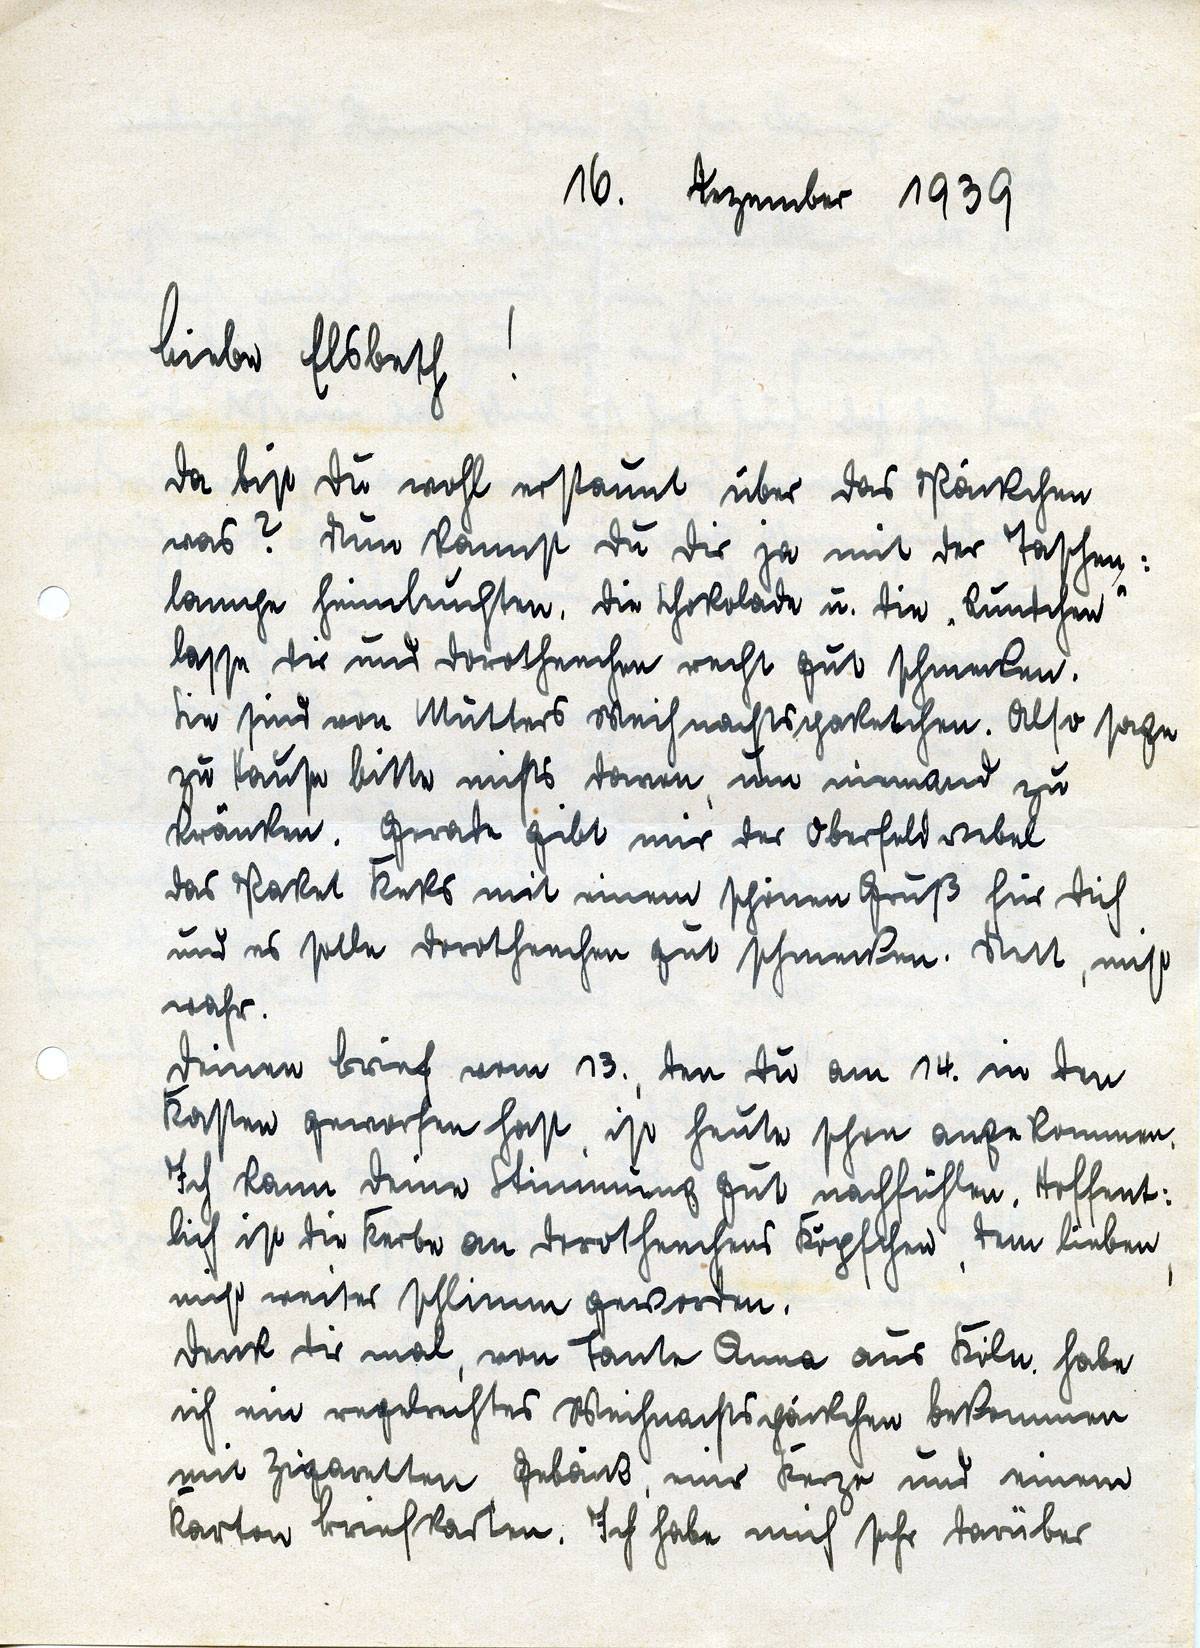 16. Dezember 1939
Liebe Elsbeth !
Da bist Du wohl erstaunt über das Päckchen
was? Nun kannst Du Dir ja mit der Taschen:
lampe heimleuchten. Die Schokolade u. die „
lasse Dir und Dorotheechen recht gut schmecken.
Sie sind von Mutters Weihnachtspaketchen. Also sage
zu Hause bitte nichts davon, um niemand zu
kränken. Gerade gibt mir der Oberfeldwebel
das Paket Keks mit einem schönen Gruß für Dich
und es solle Dorotheechen gut schmecken. Nett, nicht
wahr.
Deinen Brief vom 13., den Du am 14. in den
Kasten geworfen hast, ist heute schon angekommen.
Ich kann Deine Stimmung gut nachfühlen. Hoffent:
lich ist die Kerbe an Dorotheechens Köpfchen, dem lieben,
nicht weiter schlimm geworden.
Denk Dir mal, von Tante Anna aus Köln habe
ich ein regelrechtes Weihnachtspäckchen bekommen
mit Zigaretten, Gebäck, einer Kerze und einem
Karton Briefkarten. Ich habe mich sehr darüber